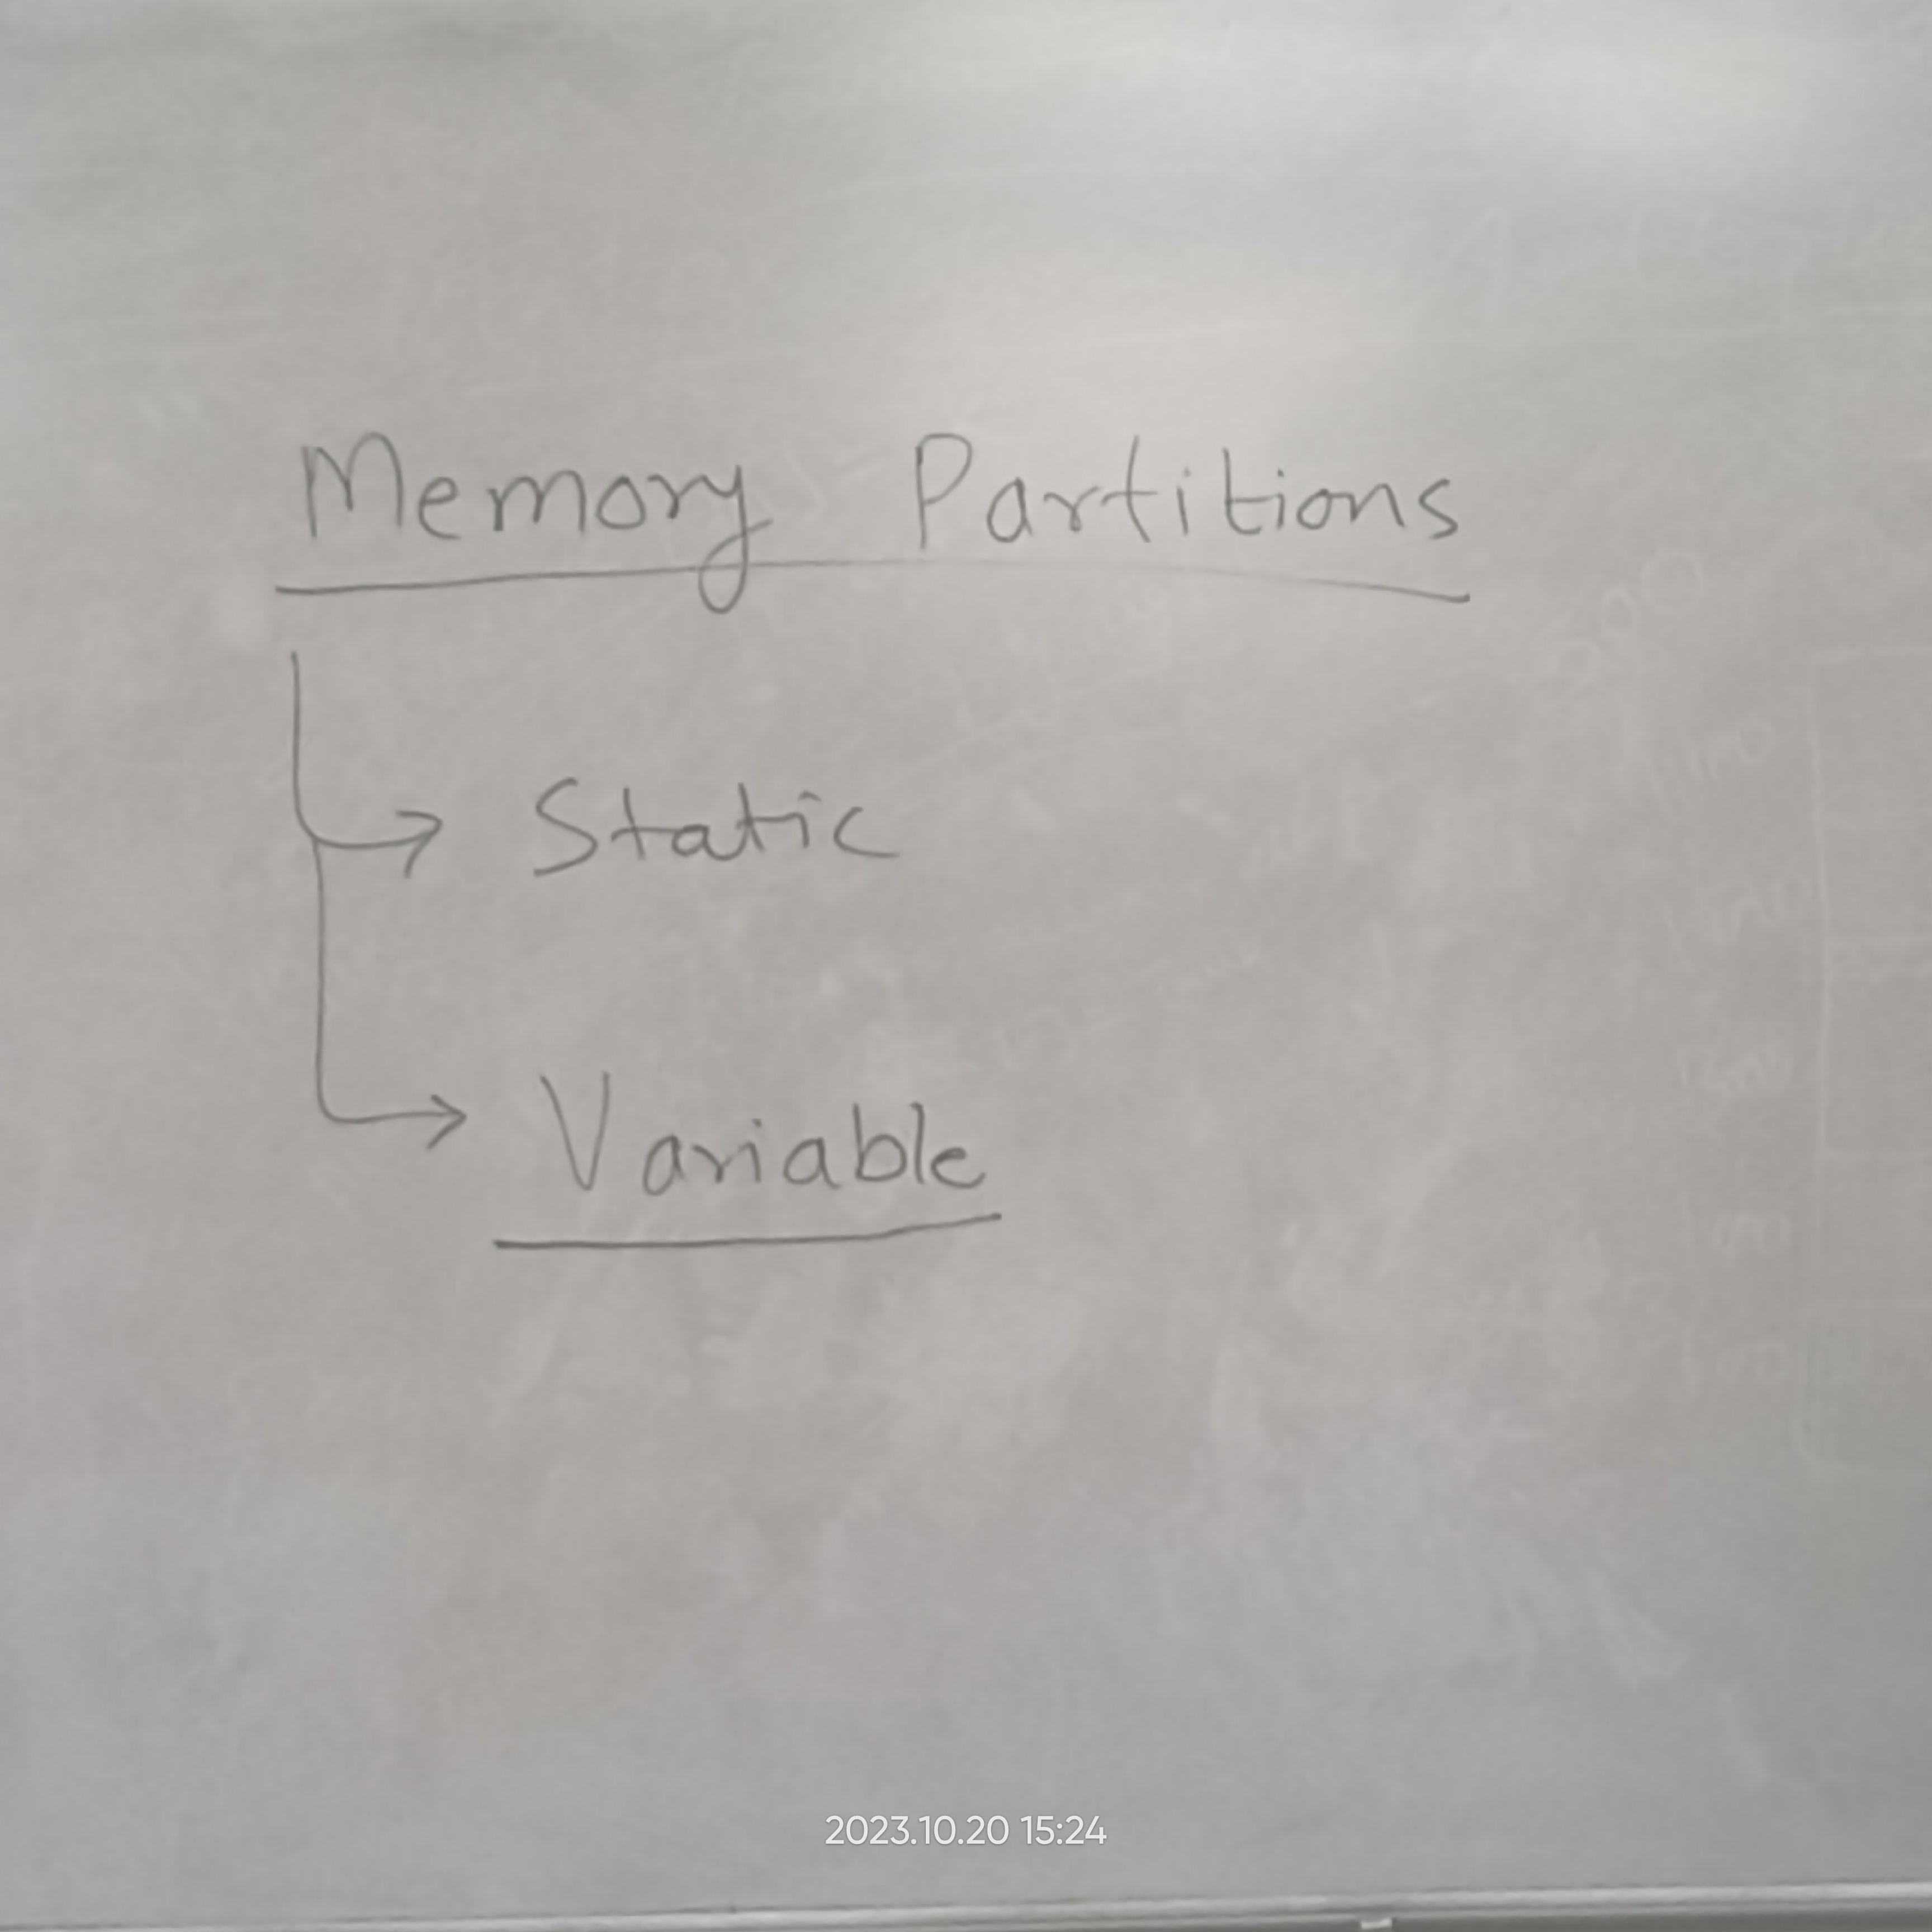 Memory Partitions
Static
Variable
2023.10.20 15:24